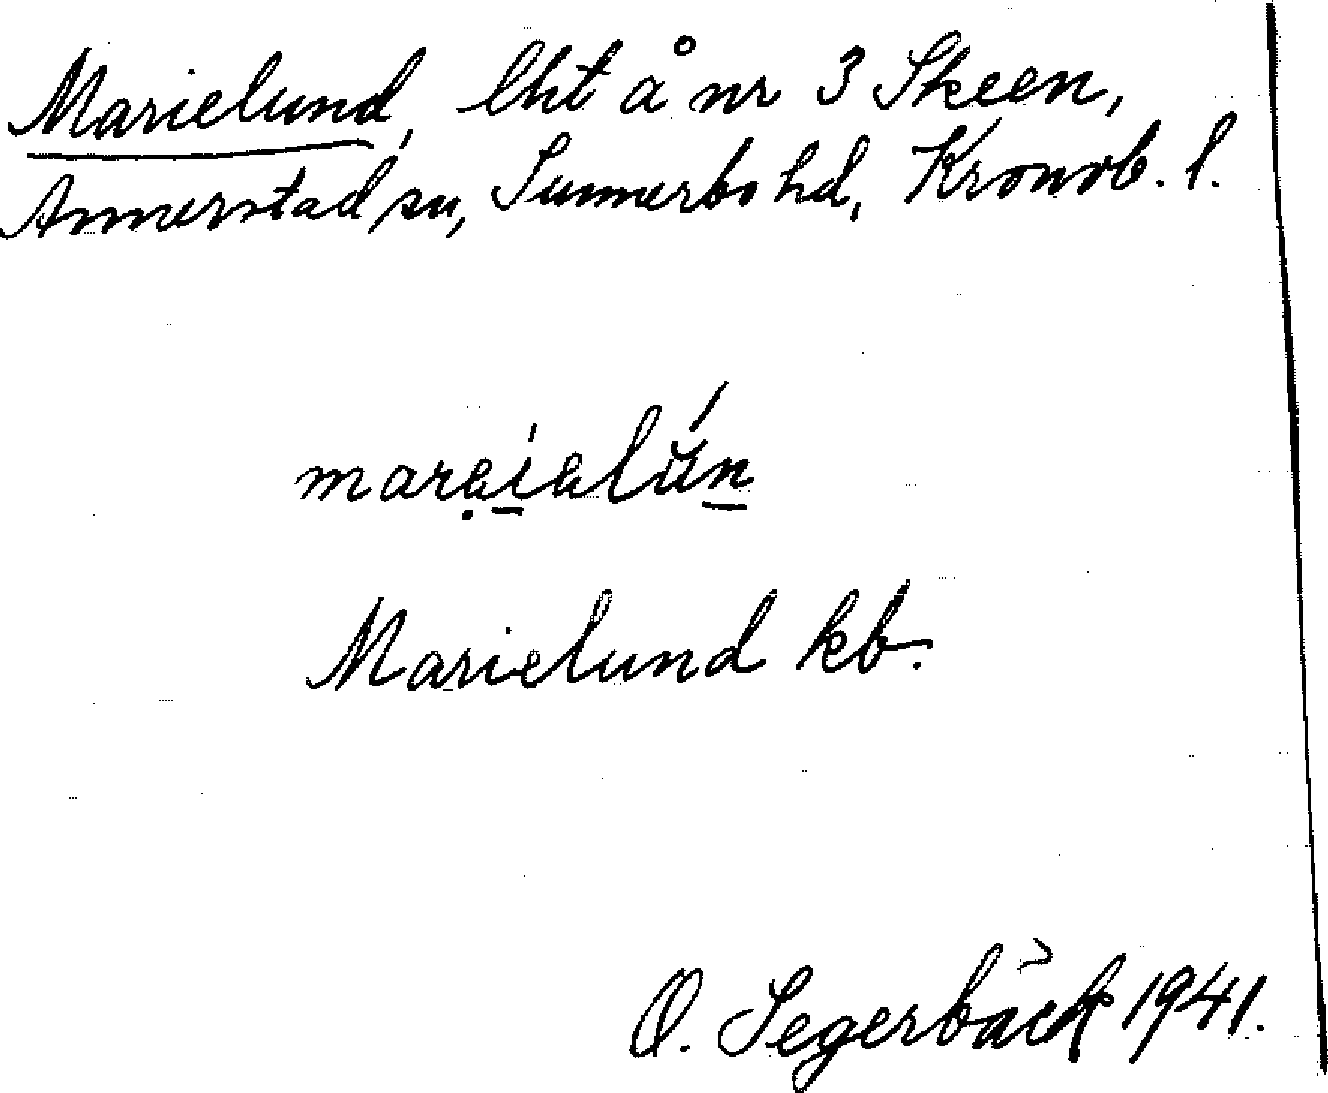 Marielund, lht å nr 3 Skeen,
Annerstad sn, Sunnerbo hd, Kronob. l.
Marielund kb.
O. Segerbäck 1941.